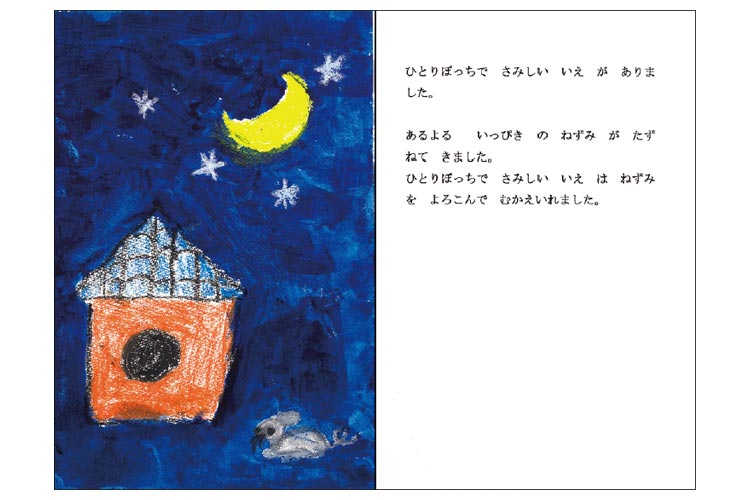 ひとりぼっちで　さみしい　いえ　が　ありま
した。
あるよる　　いっぴき　の　ねずみ　が　たず
ねて　きました。
ひとりぼっちで　さみしい　いえ　は　ねずみ
を　よろこんで　むかえいれました。